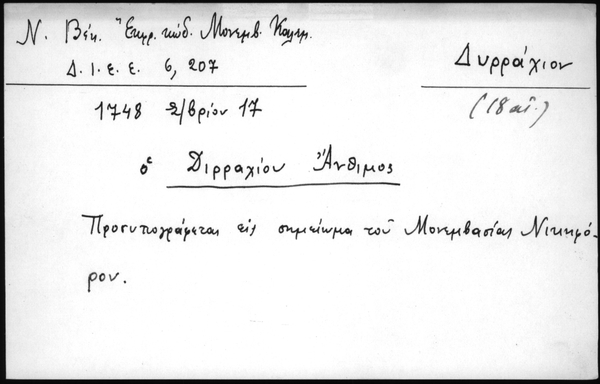 Ν. Βέη. Ἔκφρ. κώδ. Μονεμβ. Καλαμ.
Δ. Ι. Ε. Ε. 6, 207
Δυρράχιον
(18 αἰ.)
1748 2/βρίου 17
ὁ Διρραχίου Ἄνθιμος
Προσυπογράφεται εἰς σημείωμα τοῦ Μονεμβασίας Νικηφό-
ρου.